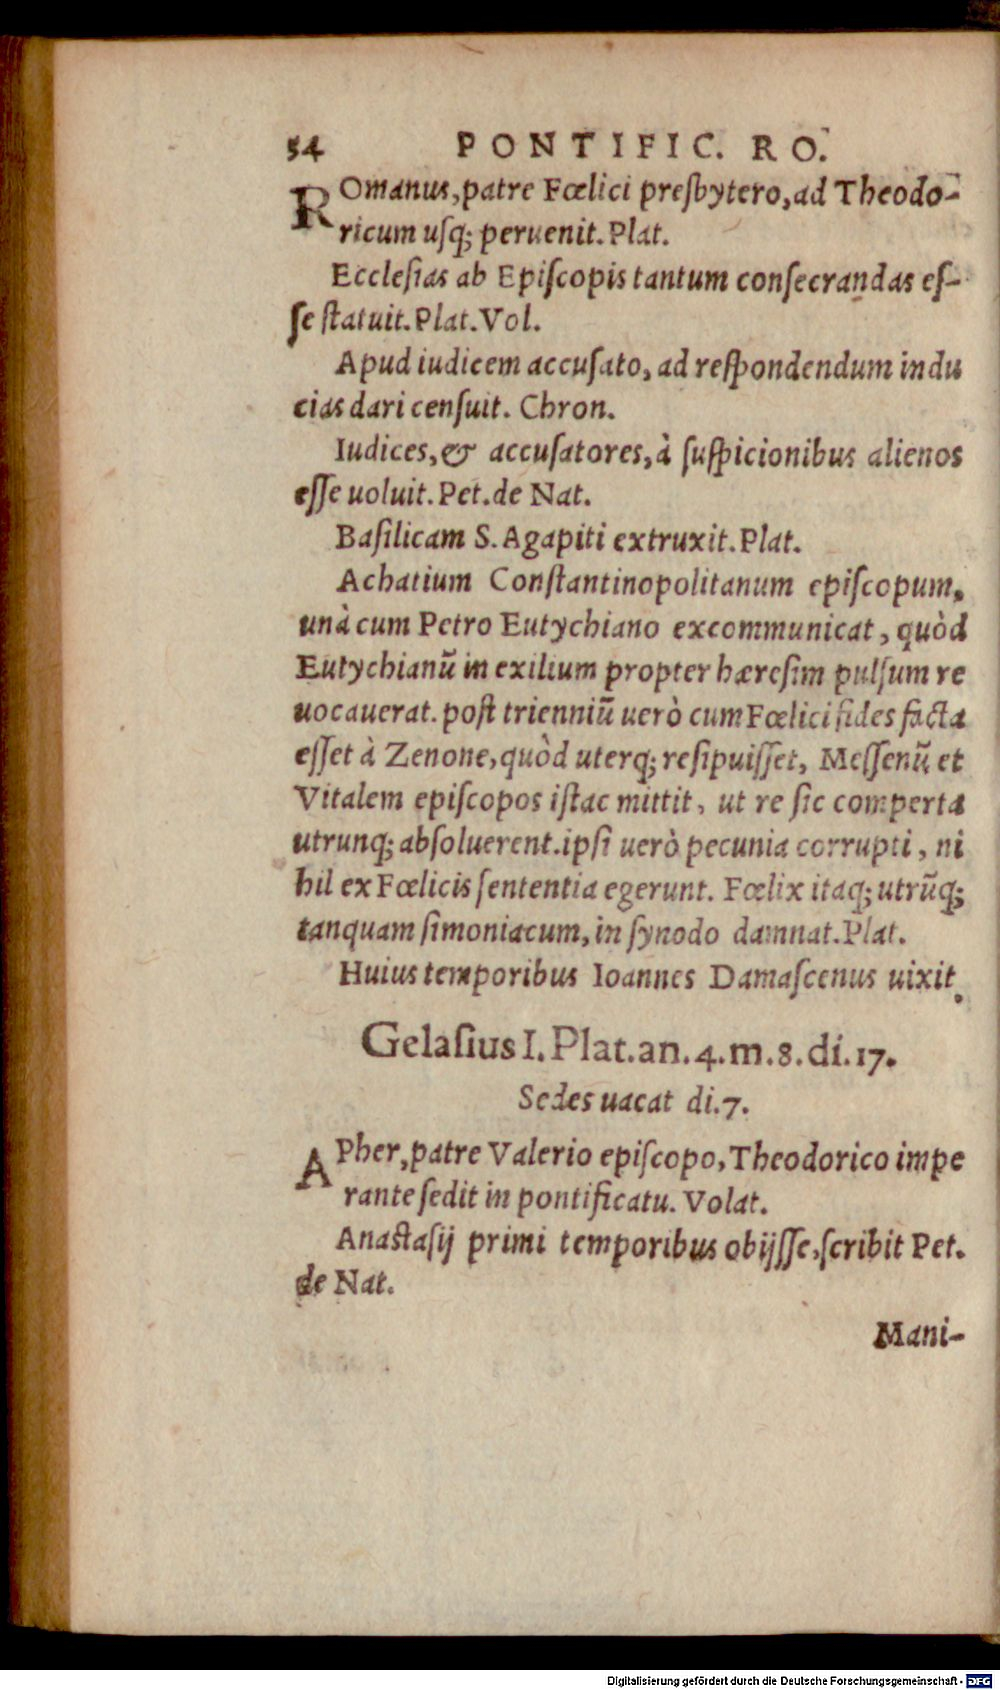 54 PONTIFIC. RO.
ROmanus, patre Fœlici preſbytero, ad Theodo-
ricum uſq; peruenit. Plat.
Eccleſias ab Epiſcopis tantum conſecrandas eſ-
ſe ſtatuit. Plat. Vol.
Apud iudicem accuſato, ad reſpondendum indu
cias dari cenſuit. Chron.
Iudices, & accuſatores, à ſuſpicionibus alienos
eſſe uoluit. Pet. de Nat.
Baſilicam S. Agapiti extruxit. Plat.
Achatium Conſtantinopolitanum epiſcopum,
unà cum Petro Eutychiano excommunicat, quòd
Eutychianũ in exilium propter hæreſim pulſum re
uocauerat. poſt trienniũ uerò cum Fœlici fides facta
eſſet à Zenone, quòd uterq; reſipuiſſet, Meſſenũ et
Vitalem epiſcopos iſtac mittit, ut re ſic comperta
utrunq; abſoluerent. ipſi uerò pecunia corrupti, ni
hil ex Fœlicis ſententia egerunt. Fœlix itaq; utrũq;
tanquam ſimoniacum, in ſynodo damnat. Plat.
Huius temporibus Ioannes Damaſcenus uixit.
Gelaſius I. Plat. an. 4. m. 8. di. 17.
Sedes uacat di. 7.
APher, patre Valerio epiſcopo, Theodorico impe
rante ſedit in pontificatu. Volat.
Anaſtaſij primi temporibus obijſſe, ſcribit Pet.
de Nat.
Mani-
Digitalisierung gefördert durch die Deutsche Forschungsgemeinschaft - DFG